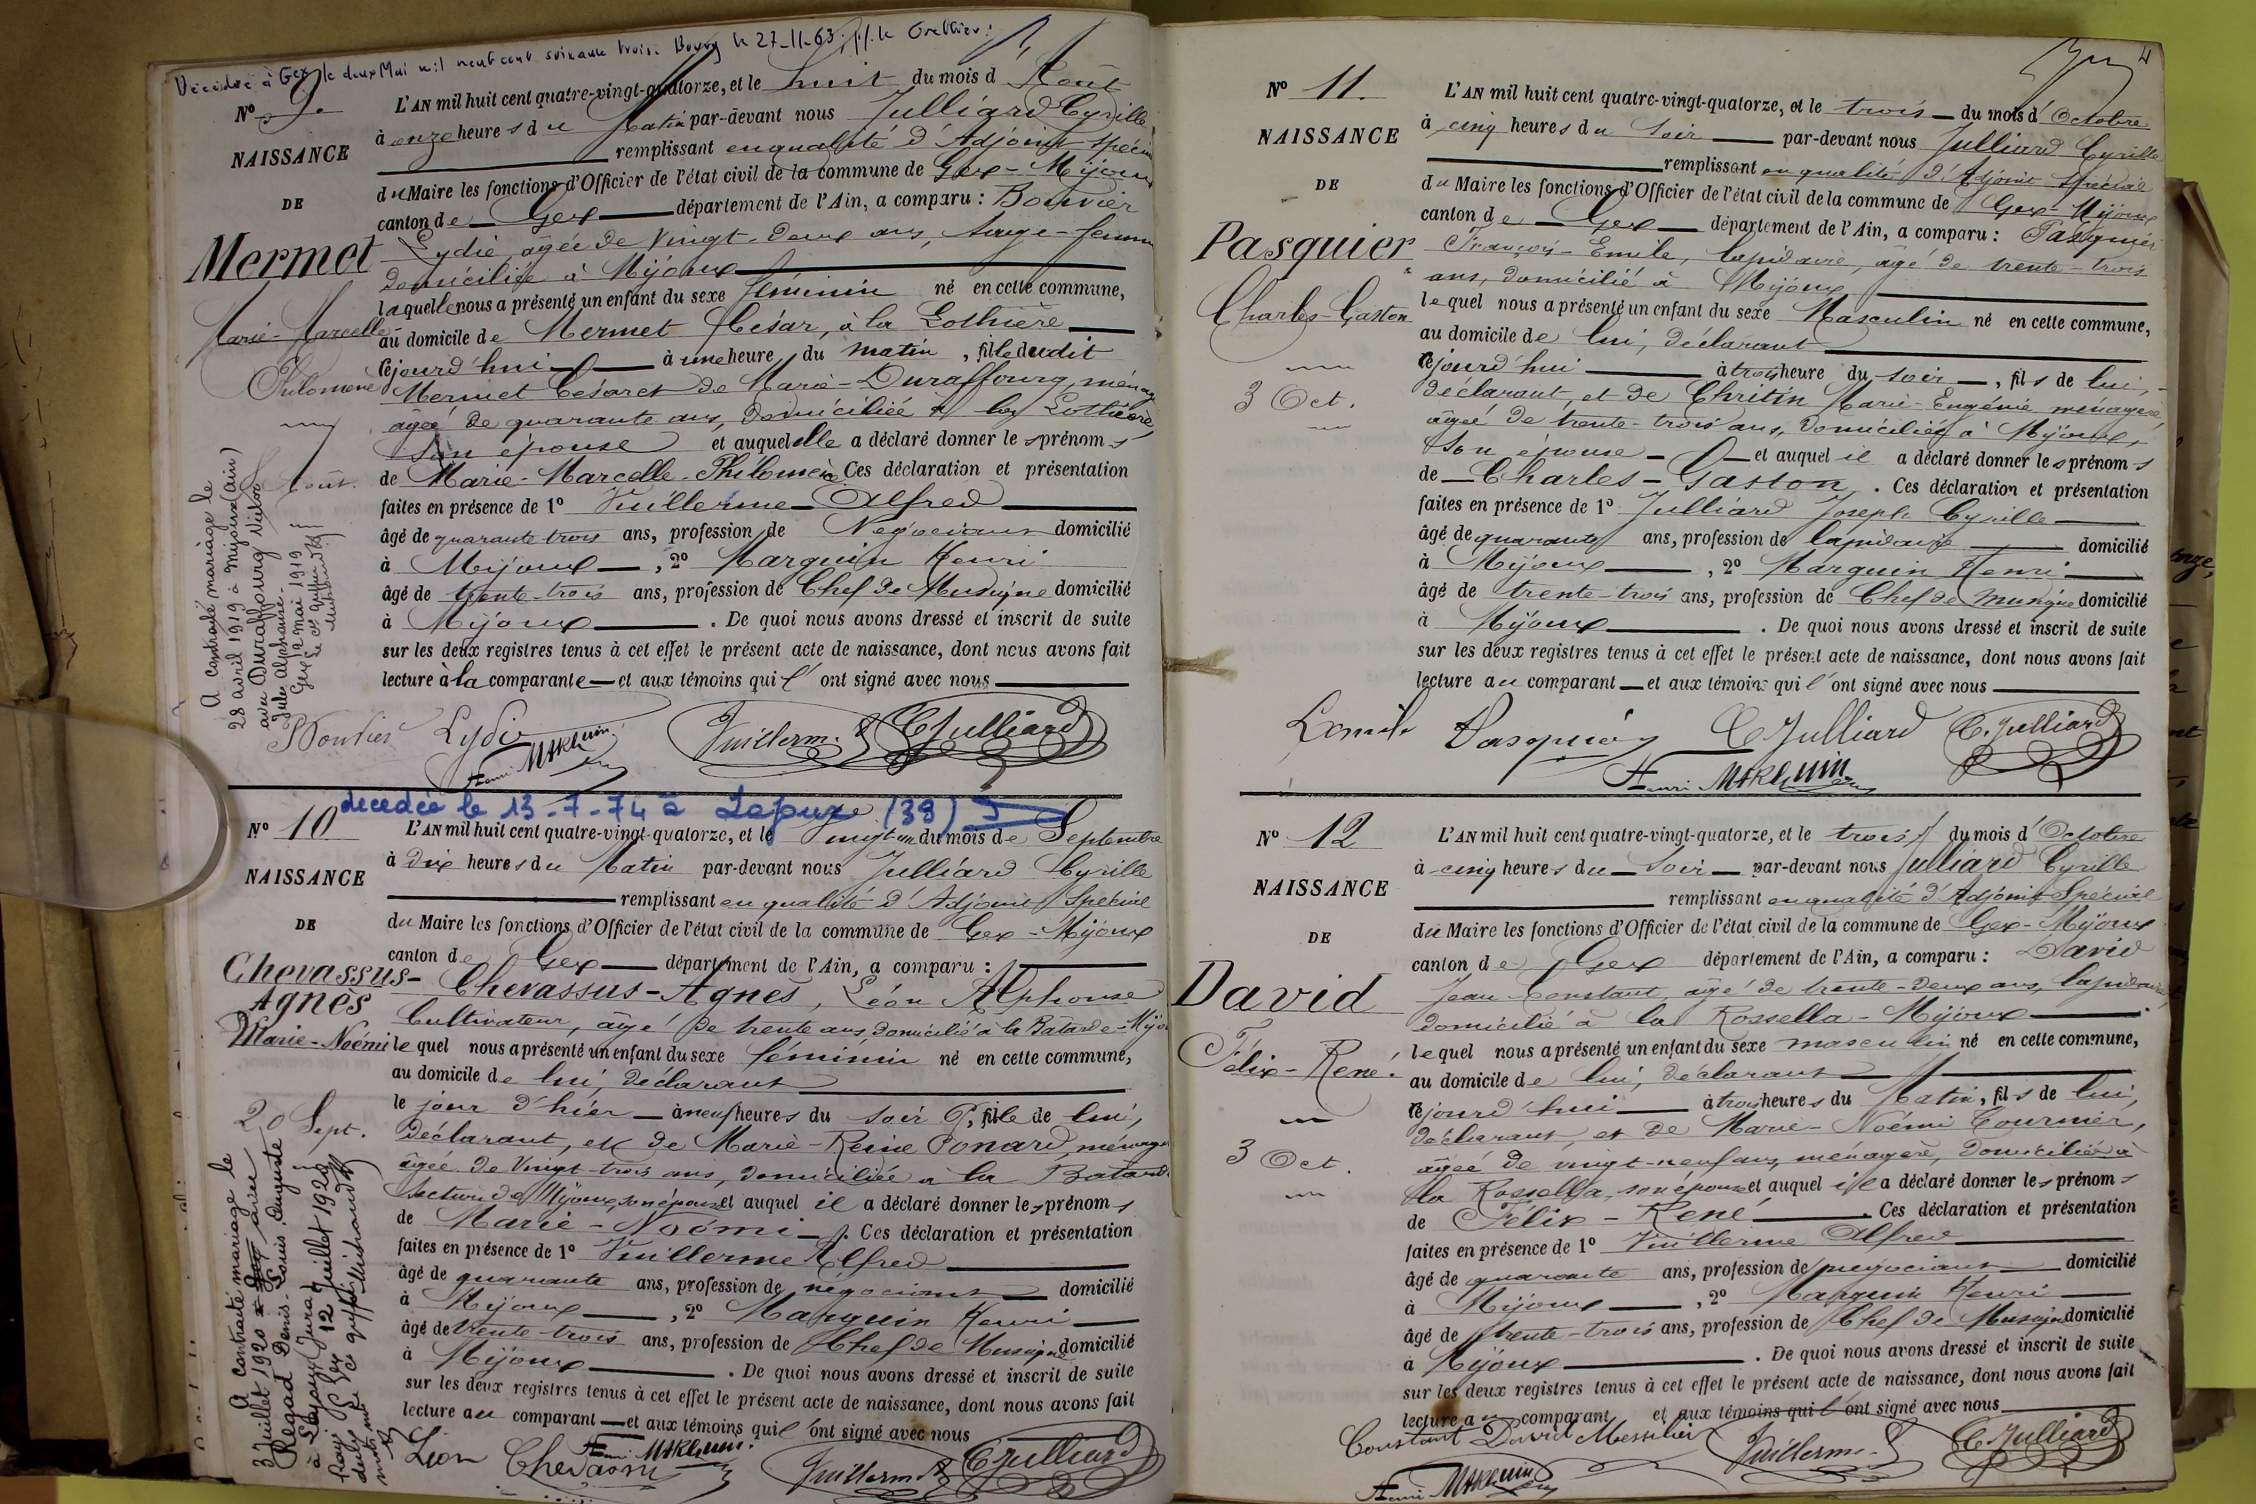 Décédée à Gex le deux Mai mil neuf cent soixante trois. Bourg le 27-11-63. le Greffier:
N° 9.
NAISSANCE
DE
Mermet
Marie-Marcelle
Philomène
8 Août.
A contracté mariage le
28 avril 1919 à Mijoux (Ain)
avec Duraffourg
Jules Alphonse.
Gex mai 1919
L'AN mil huit cent quatre-vingt-quatorze, et le huit du mois d'Août
à onze heures du Matin par-devant nous Julliard Cyrille
remplissant en qualité d'Adjoint spécial
du Maire les fonctions d'Officier de l'état civil de la commune de Gex-Mijoux
canton de Gex département de l'Ain, a comparu : Bouvier
Lydie, âgée de Vingt-deux ans, Sage-femme
domiciliée à Mijoux
laquelle nous a présenté un enfant du sexe féminin né en cette commune,
au domicile de Mermet César, à la Lothière
cejourd'hui à une heure du matin, fille dudit
Mermet César et de Marie-Duraffourg, ménag
âgée de quarante ans, domiciliée à la Lothière,
son épouse et auquel elle a déclaré donner les prénoms
de Marie-Marcelle-Philomène Ces déclaration et présentation
faites en présence de 1° Vuillerme Alfred
âgé de quarante trois ans, profession de Négociant domicilié
à Mijoux, 2° Marguin Henri
âgé de trente-trois ans, profession de Chef de Musique domicilié
à Mijoux. De quoi nous avons dressé et inscrit de suite
sur les deux registres tenus à cet effet le présent acte de naissance, dont nous avons fait
lecture à la comparante et aux témoins qui l'ont signé avec nous
Bouvier Lydie Vuillerme A C Julliard
Henri MARGUIN
décédée le 13-7-74 à (38)
N° 10
NAISSANCE
DE
Chevassus-
Agnès
Marie-Noémi
20 Sept.
A contracté mariage le
3 Juillet 1920
Regad Denis-Louis Auguste
à (Jura)
Gex 12 Juillet 1920
L'AN mil huit cent quatre-vingt-quatorze, et le Vingt un du mois de Septembre
à dix heures du Matin par-devant nous Julliard Cyrille
remplissant en qualité d'Adjoint Spécial
du Maire les fonctions d'Officier de l'état civil de la commune de Gex-Mijoux
canton de Gex département de l'Ain, a comparu :
Chevassus-Agnès, Léon Alphonse
Cultivateur, âgé de trente ans, domicilié à la Batarde-Mijou
lequel nous a présenté un enfant du sexe féminin né en cette commune,
au domicile de lui, déclarant
le jour d'hier à neuf heures du soir, fille de lui,
déclarant, et de Marie-Reine Ponard, ménag
âgée de Vingt-trois ans, domiciliée à la Batard
section de Mijoux, son épouse et auquel il a déclaré donner les prénoms
de Marie-Noémi. Ces déclaration et présentation
faites en présence de 1° Vuillerme Alfred
âgé de quarante ans, profession de négociant domicilié
à Mijoux, 2° Marguin Henri
âgé de trente trois ans, profession de Chef de Musique domicilié
à Mijoux. De quoi nous avons dressé et inscrit de suite
sur les deux registres tenus à cet effet le présent acte de naissance, dont nous avons fait
lecture au comparant et aux témoins qui l'ont signé avec nous
Léon Chevassus Henri MARGUIN Vuillerme A C Julliard
4
N° 11.
NAISSANCE
DE
Pasquier
Charles-Gaston
3 Oct.
L'AN mil huit cent quatre-vingt-quatorze, et le trois du mois d'Octobre
à cinq heures du Soir par-devant nous Julliard Cyrille
remplissant en qualité d'Adjoint spécial
du Maire les fonctions d'Officier de l'état civil de la commune de Gex-Mijoux
canton de Gex département de l'Ain, a comparu : Pasquier
François-Emile, lapidaire, âgé de trente-trois
ans, domicilié à Mijoux
lequel nous a présenté un enfant du sexe Masculin né en cette commune,
au domicile de lui, déclarant
cejourd'hui à trois heure du soir, fils de lui,
déclarant, et de Chritin Marie-Eugénie ménagère,
âgée de trente-trois ans, domiciliée à Mijoux,
son épouse et auquel il a déclaré donner les prénoms
de Charles-Gaston. Ces déclaration et présentation
faites en présence de 1° Julliard Joseph Cyrille
âgé de quarante ans, profession de lapidaire domicilié
à Mijoux, 2° Marguin Henri
âgé de trente-trois ans, profession de Chef de Musique domicilié
à Mijoux. De quoi nous avons dressé et inscrit de suite
sur les deux registres tenus à cet effet le présent acte de naissance, dont nous avons fait
lecture au comparant et aux témoins qui l'ont signé avec nous
Pasquier C Julliard C. Julliard
Henri MARGUIN
N° 12
NAISSANCE
DE
David
Félix-René.
3 Oct.
L'AN mil huit cent quatre-vingt-quatorze, et le trois du mois d'Octobre
à cinq heures du Soir par-devant nous Julliard Cyrille
remplissant en qualité d'Adjoint Spécial
du Maire les fonctions d'Officier de l'état civil de la commune de Gex-Mijoux
canton de Gex département de l'Ain, a comparu : David
Jean Constant, âgé de trente-deux ans, lapidaire,
domicilié à la Rossella-Mijoux
lequel nous a présenté un enfant du sexe masculin né en cette commune,
au domicile de lui, déclarant
cejourd'hui à trois heures du Matin, fils de lui,
déclarant, et de Marie-Noémi Tournier,
âgée de vingt-neuf ans, ménagère, domiciliée à
la Rossella, son épouse et auquel il a déclaré donner les prénoms
de Félix-René. Ces déclaration et présentation
faites en présence de 1° Vuillerme Alfred
âgé de quarante ans, profession de négociant domicilié
à Mijoux, 2° Marguin Henri
âgé de trente-trois ans, profession de Chef de Musique domicilié
à Mijoux. De quoi nous avons dressé et inscrit de suite
sur les deux registres tenus à cet effet le présent acte de naissance, dont nous avons fait
lecture au comparant et aux témoins qui l'ont signé avec nous
Constant David Vuillerme A C. Julliard
Henri MARGUIN